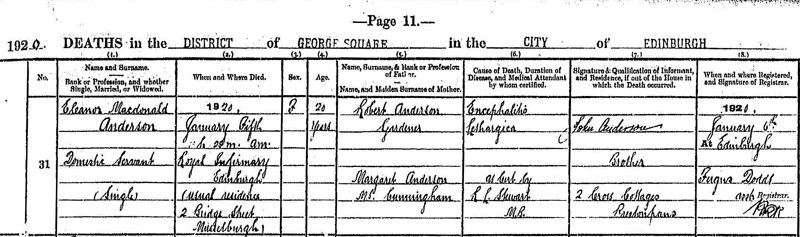 —Page 11.—
1920. DEATHS in the DISTRICT of GEORGE SQUARE in the CITY of EDINBURGH
(1.) (2.) (3.) (4.) (5.) (6.) (7.) (8.)
No.
Name and Surname.
Rank or Profession, and whether Single, Married, or Widowed.
When and Where Died.
Sex.
Age.
Name, Surname, & Rank or Profession of Father.
Name, and Maiden Surname of Mother.
Cause of Death, Duration of Disease, and Medical Attendant by whom certified.
Signature & Qualification of Informant, and Residence, if out of the House in which the Death occurred.
When and where Registered, and Signature of Registrar.
31
Eleanor Macdonald
Anderson
Domestic Servant
(Single)
1920.
January Fifth
h m. am.
Royal Infirmary
Edinburgh
(usual residence
2 Bridge Street
Musselburgh)
F
20
years
Robert Anderson
Gardener
Margaret Anderson
M.S. Cunningham
Encephalitis
Lethargica
as cert by
Stewart
M.B.
John Anderson
Brother
2 Cross Cottages
Prestonpans
1920.
January 6th
At Edinburgh
Fergus Dodds
Registrar.